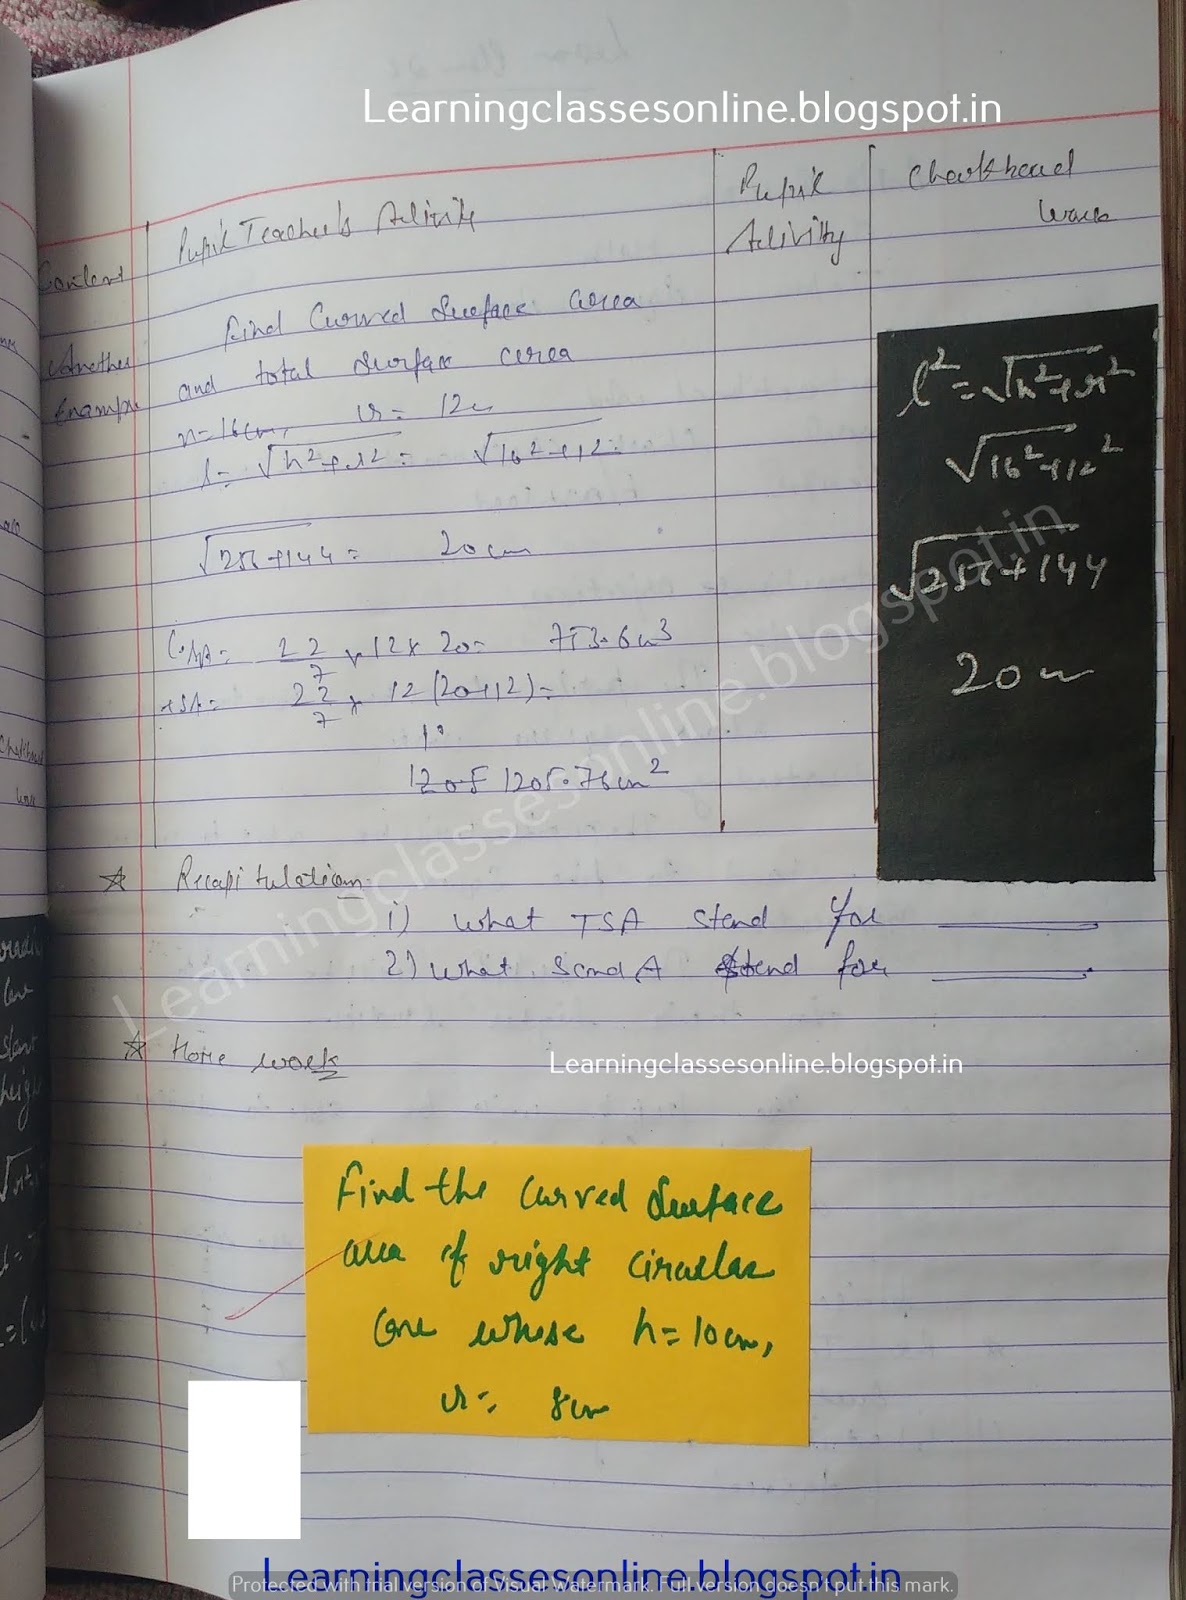 Learningclassesonline.blogspot.in
Content
Pupil Teacher's Activity
Pupil
Activity
Chalkboard
work
Another
Example
find Curved Surface area
and total Surface area
h=16cm, r= 12cm
l= √h²+r² = √16²+12²
√256+144 = 20cm
CSA= 22/7 × 12 × 20 = 753.6cm³
TSA= 22/7 × 12 (20+12) =
1205 1205.76cm²
l² = √h²+r²
√16²+12²
√256+144
20 cm
Learningclassesonline.blogspot.in
Recapitulation
1) What TSA stand for
2) What S and A stand for
Home work
Learningclassesonline.blogspot.in
Find the Curved Surface
area of right circular
Cone whose h=10cm,
r= 8cm
Learningclassesonline.blogspot.in
Protected with trial version of Visual Watermark. Full version doesn't put this mark.